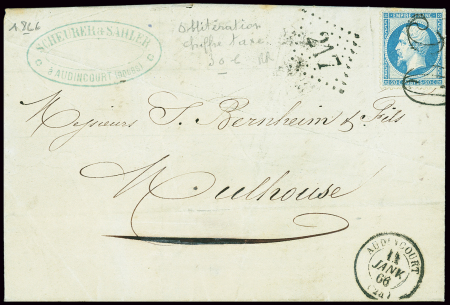 1866
SCHEURER & SAHLER
à AUDINCOURT (DOUBS)
Oblitération
chiffre taxe
30 c RR
217
EMPIRE FRANC
20 C
Messieurs J. Bernheim & Fils
Mulhouse
AUDINCOURT
11
JANV
66
(24)